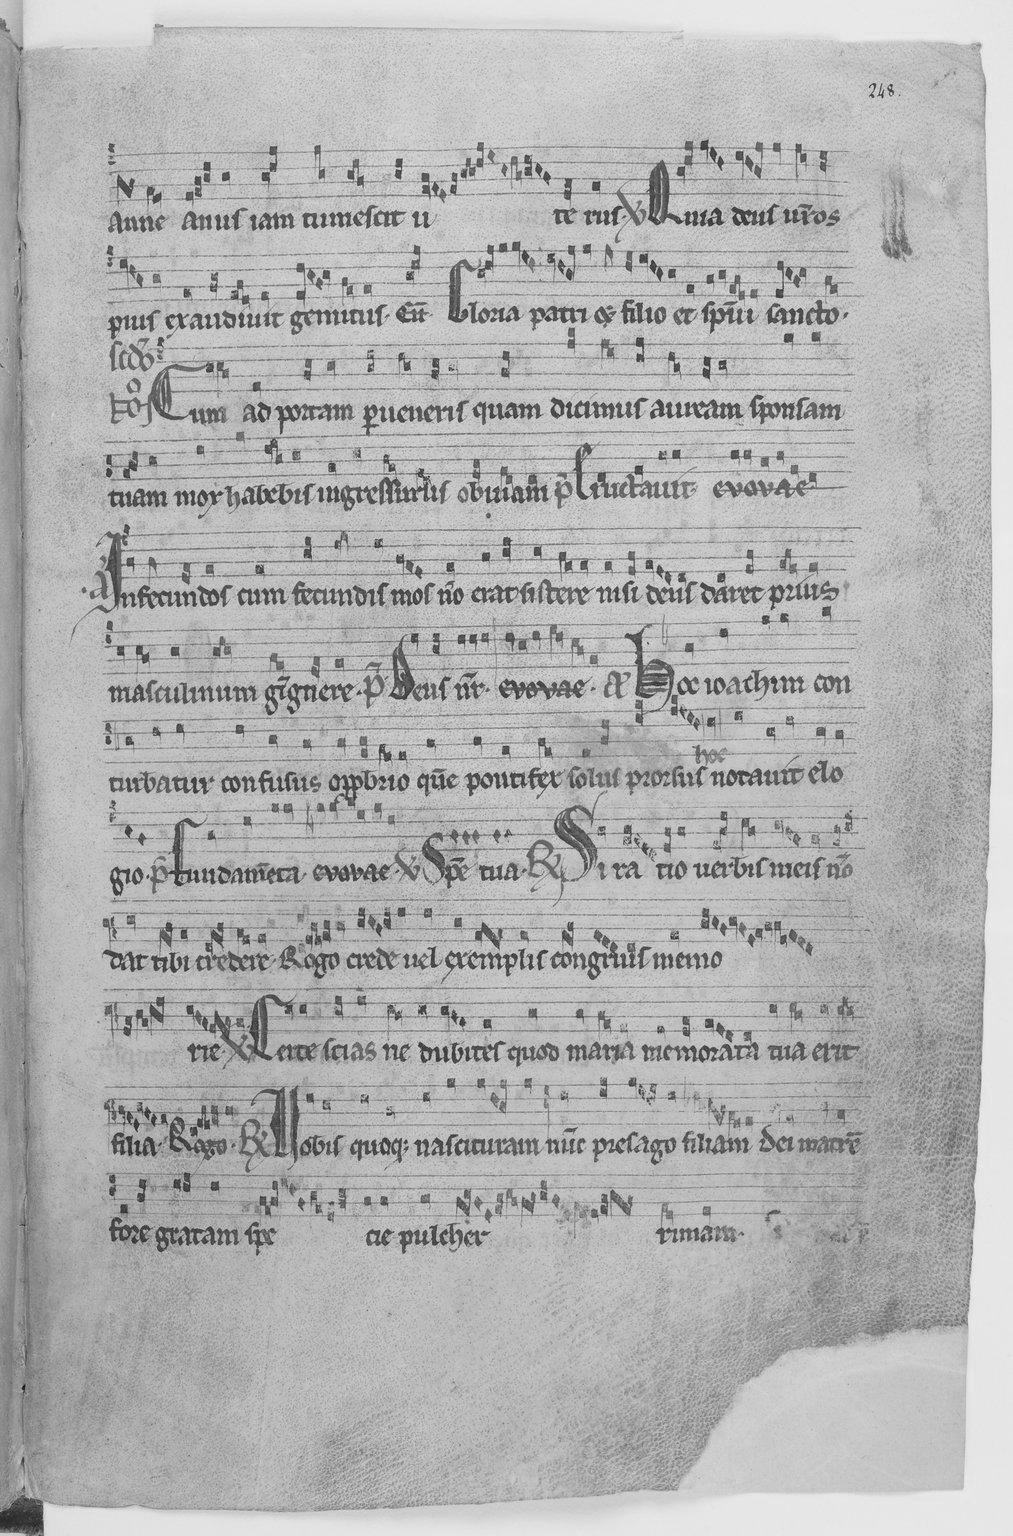 248.
Anne anus iam tumescit u te rus. V Quia deus ur̄os
pius exaudiuit gemitus. En̄ Gloria patri & filio et spū sancto.
scd̄o
Cum ad portam ꝑueneris quam dicimus auream sponsam
tuam mox habebis ingressurus obuiam p̄ Eructauit evovae
A Infecundos cum fecundis mos nō erat sistere nisi deus daret prius
masculinum gīgnere. p̄ Deus nr̄. evovae. A Hoc ioachim con
turbatur confusus opꝓbrio quē pontifex solus prorsus notauit elo
hoc
gio. p̄ Fundamēta. evovae V Spē tua. R Si ra tio uerbis meis nō
dat tibi credere. Rogo crede uel exemplis congruis memo
rie V Certe scias ne dubites quod maria memorata tua erit
filia. Rogo. R Nobis quoq; nascituram nūc presago filiam dei matrē
fore gratam spe cie pulcher rimam.